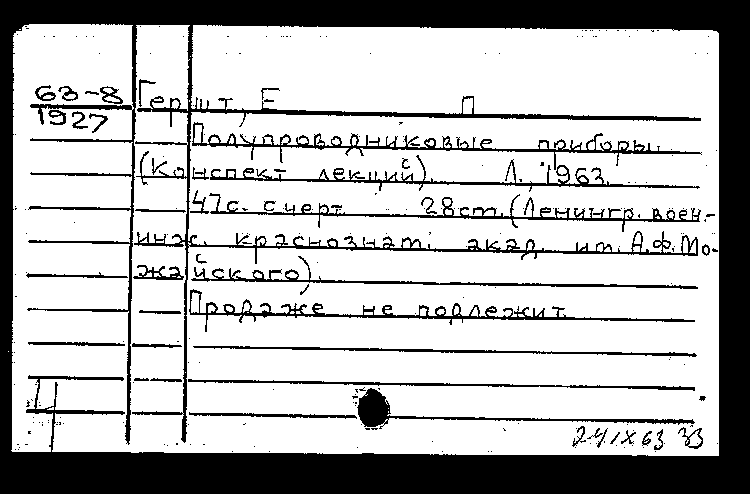 63-8
1927
Гершт, Е П
Полупроводниковые приборы.
(Конспект лекций). Л., 1963.
47с. с черт. 28см. (Ленингр. воен-
инж. краснознам. акад. им. А.Ф.Мо-
жайского).
Продаже не подлежит.
24 IX 63